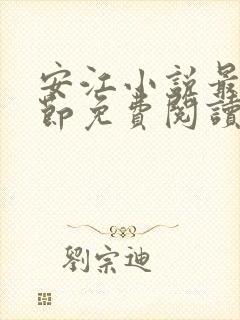 安江小説最
節免費閱讀
劉宗迪